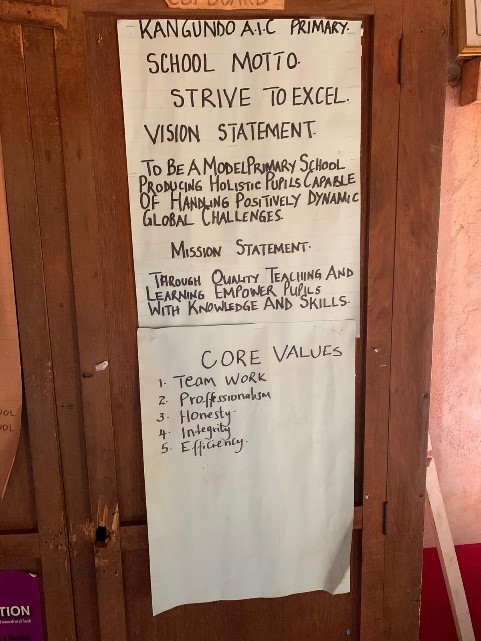 CUPBOARD
KANGUNDO A.I.C PRIMARY.
SCHOOL MOTTO.
STRIVE TO EXCEL.
VISION STATEMENT.
TO BE A MODEL PRIMARY SCHOOL
PRODUCING HOLISTIC PUPILS CAPABLE
OF HANDLING POSITIVELY DYNAMIC
GLOBAL CHALLENGES.
MISSION STATEMENT.
THROUGH QUALITY TEACHING AND
LEARNING EMPOWER PUPILS
WITH KNOWLEDGE AND SKILLS.
CORE VALUES
1. TEAM WORK
2. Proffessionalism
3. Honesty.
4. Integrity
5. Efficiency.
OOL
OOL
TION